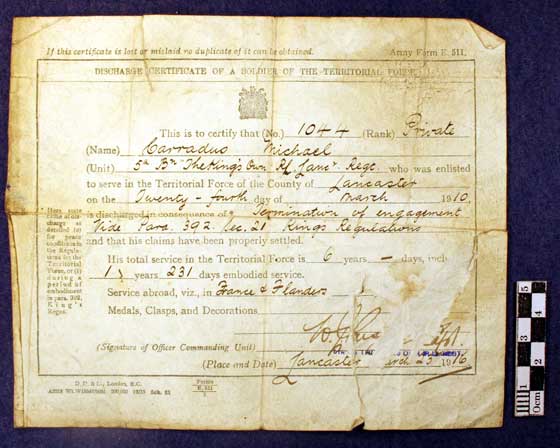 If this certificate is lost or mislaid no duplicate of it can be obtained. Army Form E. 511.
DISCHARGE CERTIFICATE OF A SOLDIER OF THE TERRITORIAL FORCE
This is to certify that (No.) 1044 (Rank) Private
(Name) Carradus Michael
(Unit) 5th Bn The King's Own Rl Lancr Regt. who was enlisted
to serve in the Territorial Force of the County of Lancaster
on the Twenty-fourth day of March 1910,
is discharged in consequence of * Termination of engagement
Vide Para. 392. Sec. 21 Kings Regulations
and that his claims have been properly settled.
His total service in the Territorial Force is 6 years — days, incl
1 years 231 days embodied service.
Service abroad, viz., in France & Flanders
Medals, Clasps, and Decorations
(Signature of Officer Commanding Unit)
(Place and Date) Lancaster March 23 1916
* Here state
charge as
detailed (a) for
peace
conditions in
the Regula-
tions for the
Territorial
Force, or (b)
during a
period of
embodiment
in para. 392,
King's
Regns.
D. P. & L., London, E.C.
Forms
E. 511
5
0cm